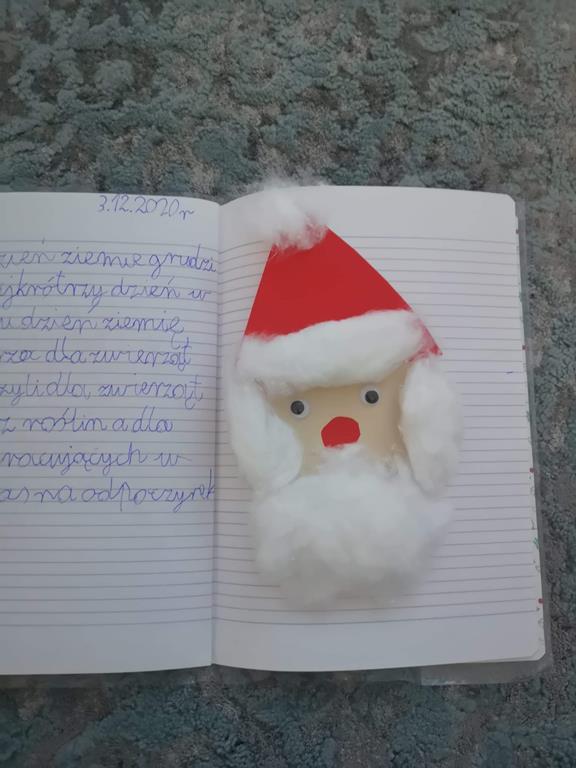 3.12.2020r
zień ziemię grudzi
jkrótrzy dzień w
u dzień ziemię
rza dla zwierząt
zyli dla zwierząt
z roślin a dla
racujących w
as na odpoczynek